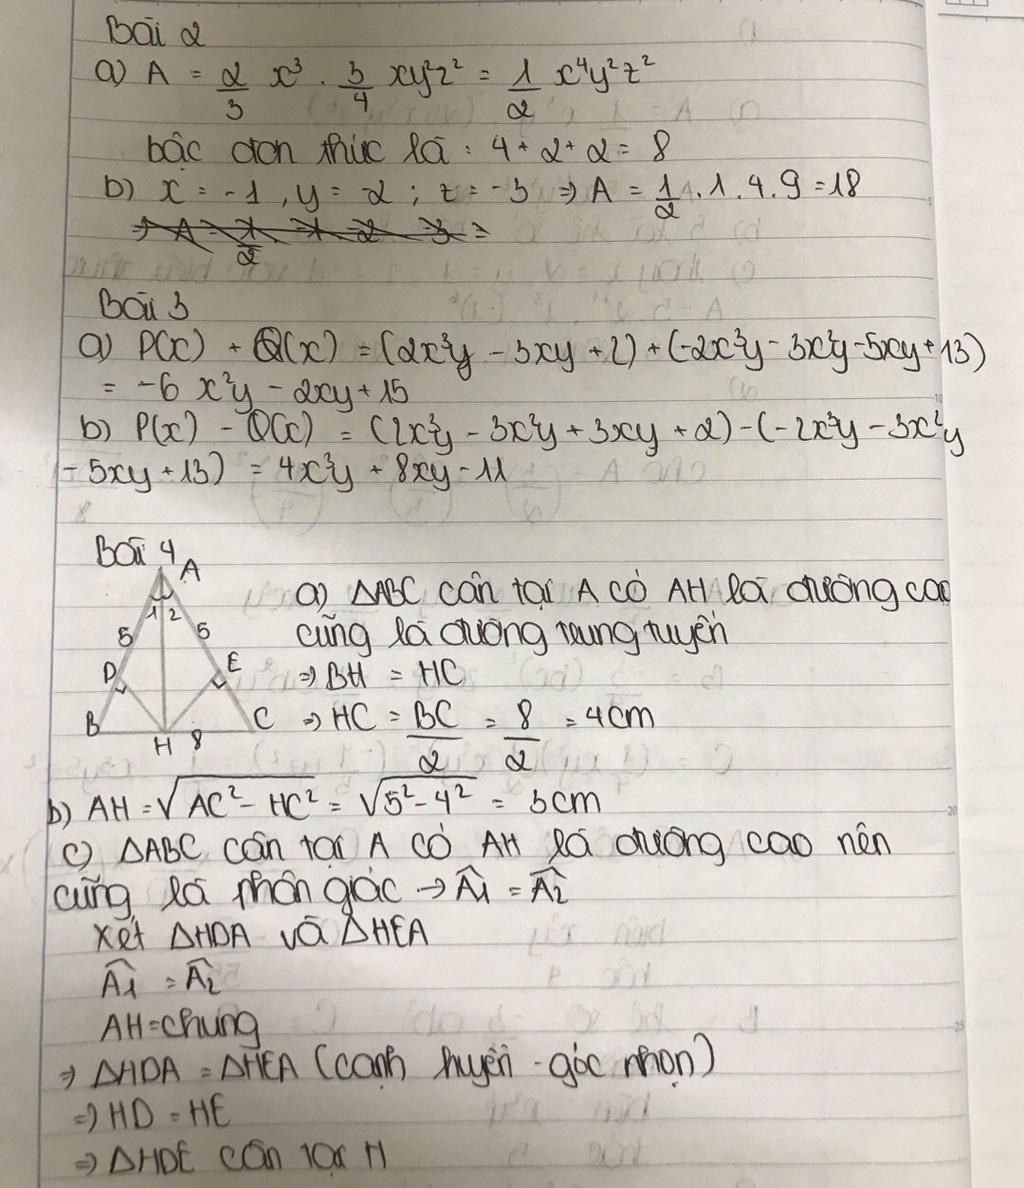 Bài 2
a) A = 2/3 x³ . 3/4 xy²z² = 1/2 x⁴y²z²
bậc đơn thức là : 4 + 2 + 2 = 8
b) x = -1 , y = -2 ; z = -3 => A = 1/2 . 1 . 4 . 9 = 18
Bài 3
a) P(x) + Q(x) = (2x²y - 3xy + 2) + (-2x²y - 3x²y - 5xy + 13)
= -6 x²y - 2xy + 15
b) P(x) - Q(x) = (2x²y - 3x²y + 3xy + 2) - (-2x²y - 3x²y
- 5xy + 13) = 4x²y + 8xy - 11
Bài 4
A
1 2
5 5
D E
B C
H 8
a) ΔABC cân tại A có AH là đường cao
cũng là đường trung tuyến
=> BH = HC
=> HC = BC/2 = 8/2 = 4cm
b) AH = √AC² - HC² = √5² - 4² = 3cm
c) ΔABC cân tại A có AH là đường cao nên
cũng là phân giác -> Â1 = Â2
Xét ΔHDA và ΔHEA
Â1 = Â2
AH = chung
=> ΔHDA = ΔHEA (cạnh huyền - góc nhọn)
=> HD = HE
=> ΔHDE cân tại H